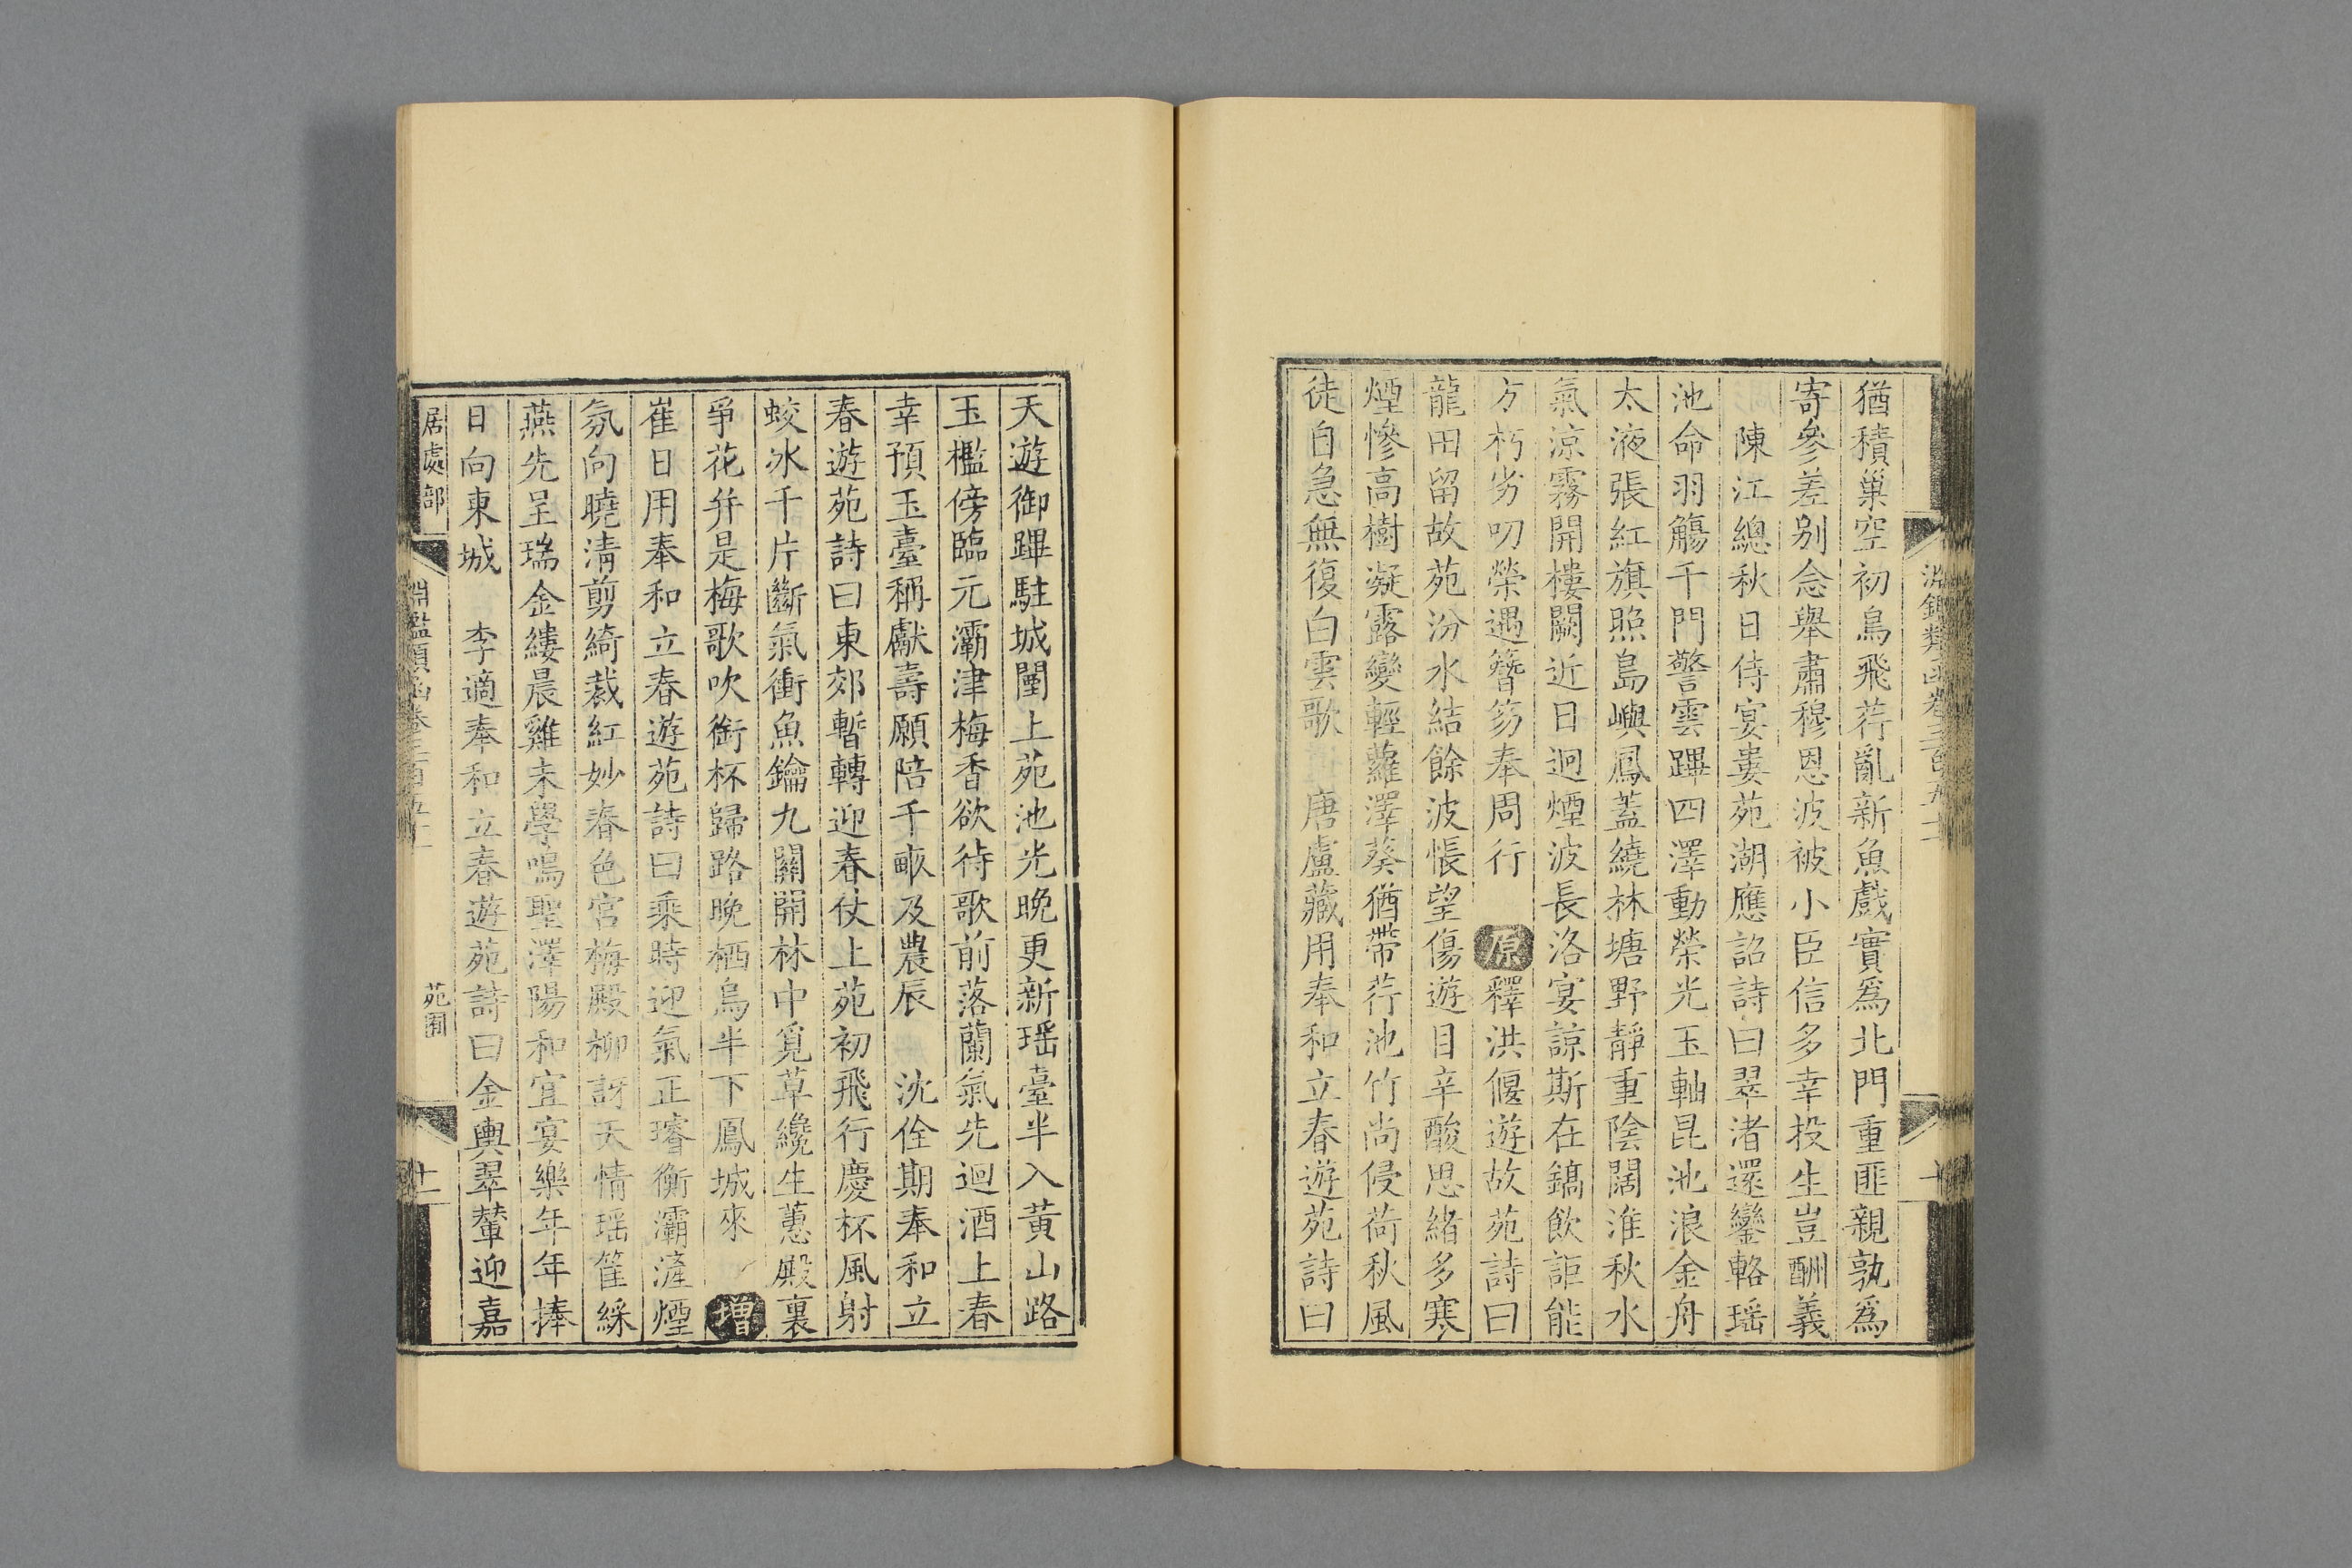 猶積巢空初鳥飛荇亂新魚戲實爲北門重匪親孰爲
寄參差别念舉肅穆恩波被小臣信多幸投生豈酬義
陳江總秋日侍宴婁苑湖應詔詩曰翠渚還鑾輅瑶
池命羽觴千門警雲蹕四澤動榮光玉軸昆池浪金舟
太液張紅旗照島嶼鳳蓋繞林塘野靜重陰闊淮秋水
氣涼霧開樓闕近日迥煙波長洛宴諒斯在鎬飲詎能
方朽劣叨榮遇簪笏奉周行 原 釋洪偃遊故苑詩曰
龍田留故苑汾水結餘波悵望傷遊目辛酸思緒多寒
煙慘高樹凝露變輕蘿澤葵猶帶荇池竹尚侵荷秋風
徒自急無復白雲歌 唐盧藏用奉和立春遊苑詩曰
天遊御蹕駐城闉上苑池光晚更新瑶臺半入黃山路
玉檻傍臨元灞津梅香欲待歌前落蘭氣先迴酒上春
幸預玉臺稱獻壽願陪千畝及農辰 沈佺期奉和立
春遊苑詩曰東郊暫轉迎春仗上苑初飛行慶杯風射
蛟冰千片斷氣衝魚鑰九關開林中覓草纔生蕙殿裏
爭花并是梅歌吹銜杯歸路晚栖烏半下鳳城來 增
崔日用奉和立春遊苑詩曰乘時迎氣正璿衡灞滻煙
氛向曉淸剪綺裁紅妙春色宮梅殿柳訝天情瑶筐綵
燕先呈瑞金縷晨雞未學鳴聖澤陽和宜宴樂年年捧
日向東城 李適奉和立春遊苑詩曰金輿翠輦迎嘉
居處部
苑囿
十一